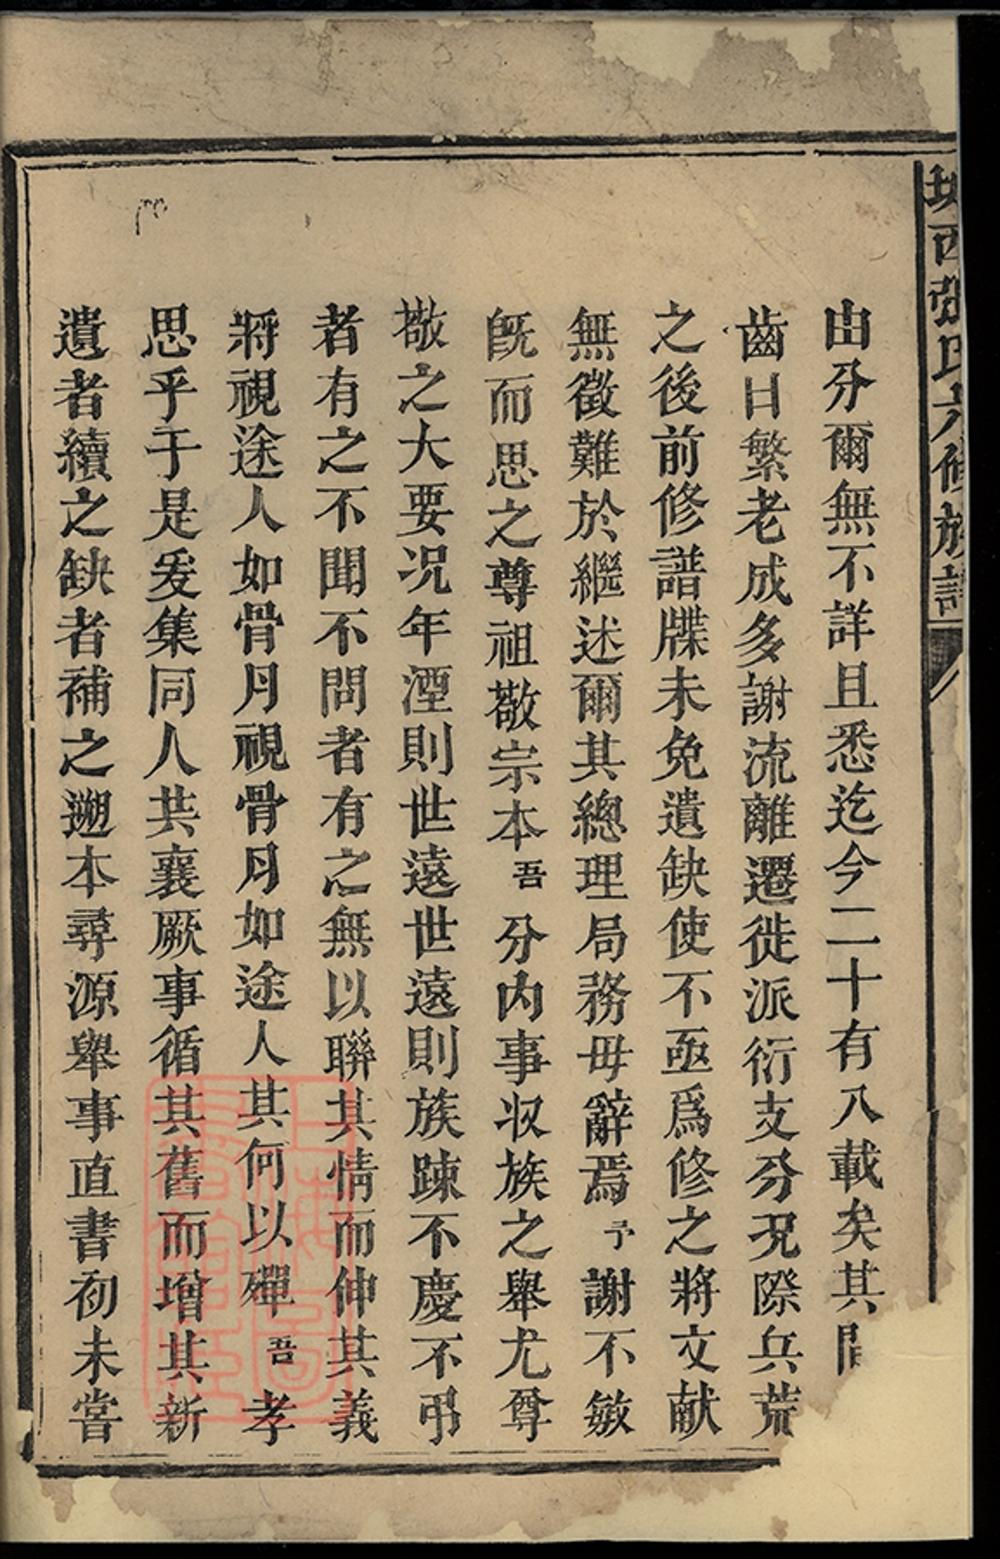 城西張氏六修族譜
由分爾無不詳且悉迄今二十有八載矣其間
齒日繁老成多謝流離遷徙派衍支分況際兵荒
之後前修譜牒未免遺缺使不亟爲修之將文献
無徵難於繼述爾其總理局務毋辭焉予謝不敏
旣而思之尊祖敬宗本吾分内事収族之舉尤尊
敬之大要况年湮則世遠世遠則族踈不慶不弔
者有之不聞不問者有之無以聯其情而伸其義
將視途人如骨月視骨月如途人其何以殫吾孝
思乎于是爰集同人共襄厥事循其舊而增其新
遺者續之缺者補之遡本尋源舉事直書初未嘗